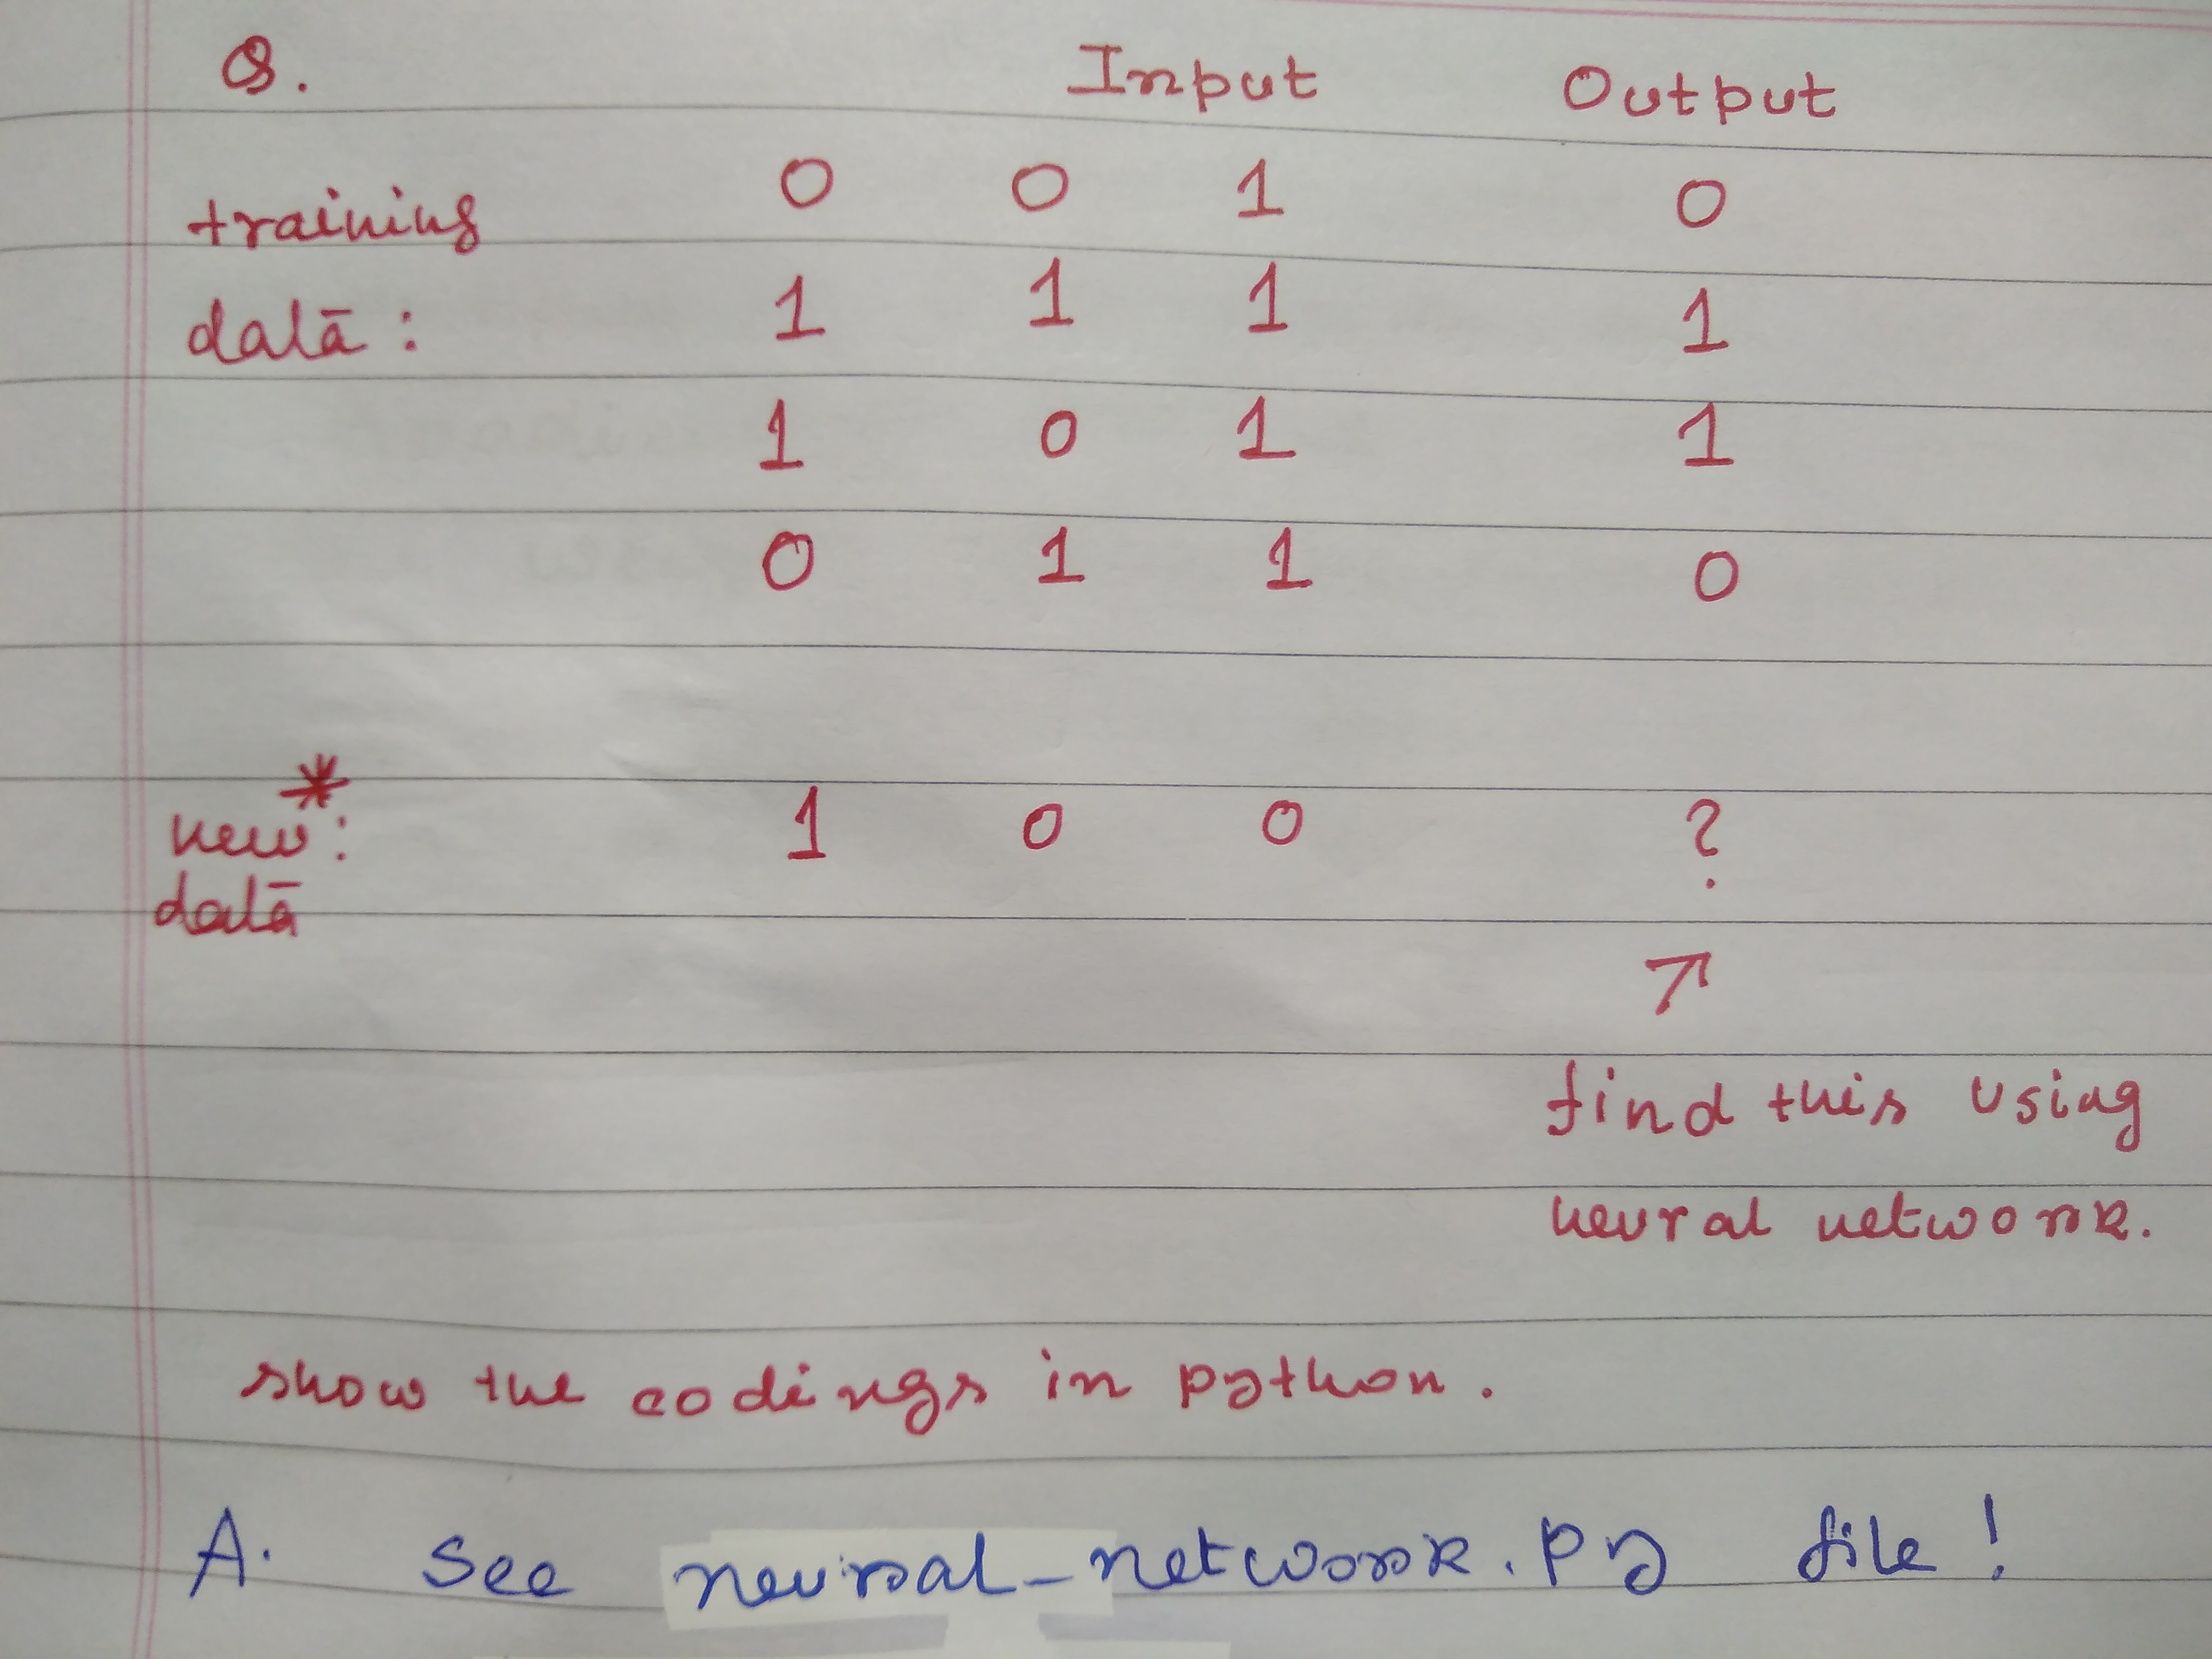 Q. Input Output
training 0 0 1 0
data: 1 1 1 1
1 0 1 1
0 1 1 0
*
new: 1 0 0 ?
data
↗
find this using
neural network.
show the codings in python.
A. See neural_network.py file!